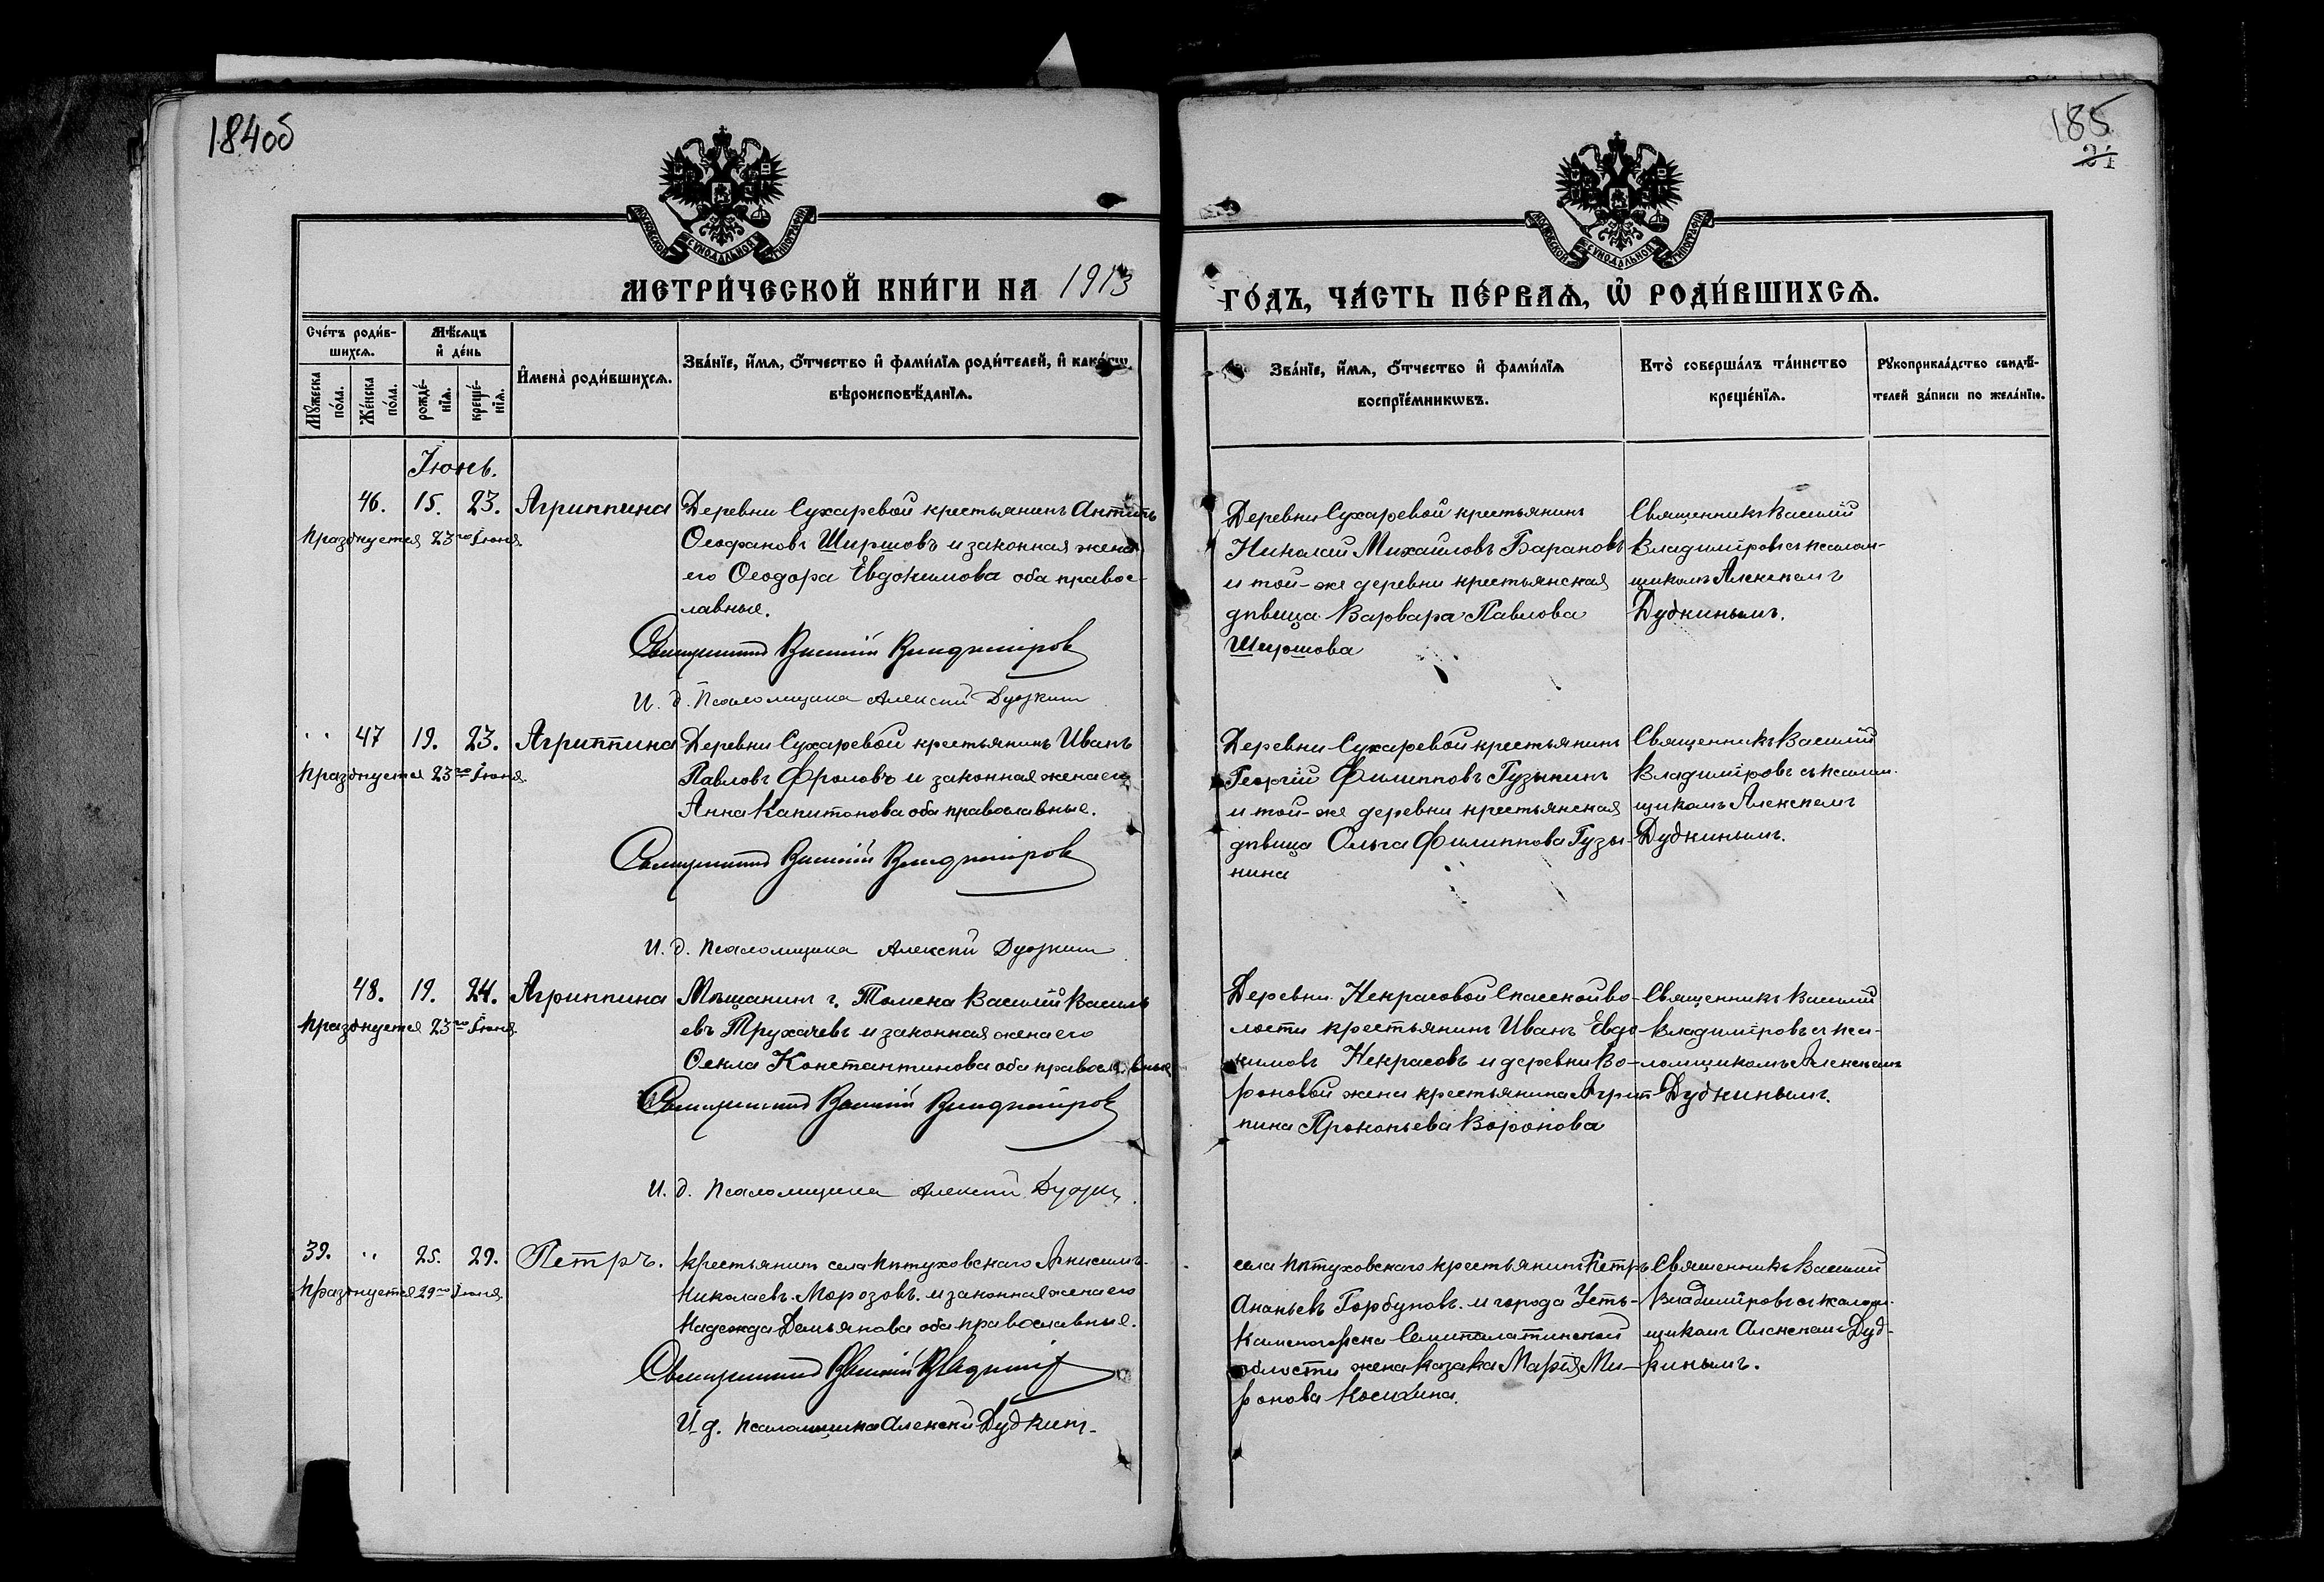 184об
185
21
МОСКОВСКОЙ СѴНОДАЛЬНОЙ ТИПОГРАФІИ
МОСКОВСКОЙ СѴНОДАЛЬНОЙ ТИПОГРАФІИ
МЕТРИ́ЧЕСКОЙ КНИ́ГИ НА 1913
ГО́ДЪ, ЧА́СТЬ ПЕ́РВАѦ, Ѡ҆ РОДИ́ВШИХСѦ.
Сче́тъ роди́в-
шихсѧ.
Мѣ́сяцъ
и҆ де́нь
Мꙋ́жеска
по́ла.
Же́нска
по́ла.
рожде́-
нїѧ.
креще́-
нїѧ.
И҆мена̀ роди́вшихсѧ.
Зва́нїе, и҆́мѧ, ѻ҆́тчество и҆ фами́лїѧ роди́телей, и҆ како́гѡ
вѣроисповѣ́данїѧ.
Зва́нїе, и҆́мѧ, ѻ҆́тчество и҆ фами́лїѧ
воспрїе́мникѡвъ.
Кто̀ соверша́лъ та́инство
креще́нїѧ.
Рꙋкоприкла́дство свидѣ́-
телей за́писи по жела́нїю.
Іюнь.
46. 15. 23. Агриппина
Празднуется 23го Іюня.
Деревни Сухаревой крестьянинъ Антипъ
Ѳеофановъ Ширшовъ и законная жена
его Ѳеодора Евдокимова оба правос-
лавные.
Священникъ Василій Владиміров
И. д. Псаломщика Алексѣй Дудкин
Деревни Сухаревой крестьянинъ
Николай Михаиловъ Барановъ
и той-же деревни крестьянская
дѣвица Варвара Павлова
Ширшова
Священникъ Василій
Владиміровъ съ псалом-
щикомъ Алексѣемъ
Дудкинымъ.
47 19. 23. Агриппина
Празднуется 23го Іюня.
Деревни Сухаревой крестьянинъ Иванъ
Павловъ Фроловъ и законная жена его
Анна Капитонова оба православные.
Священникъ Василій Владиміров
И. д. Псаломщика Алексѣй Дудкин
Деревни Сухаревой крестьянинъ
Георгій Филипповъ Гузынинъ
и той-же деревни крестьянская
дѣвица Ольга Филиппова Гузы-
нина
Священникъ Василій
Владиміровъ съ псалом-
щикомъ Алексѣемъ
Дудкинымъ.
48. 19. 24. Агриппина
Празднуется 23го Іюня.
Мѣщанинъ г. Томска Василій Василь
евъ Трухачевъ и законная жена его
Ѳекла Константинова оба православные
Священникъ Василій Владиміров
И. д. Псаломщика Алексѣй Дудкин
Деревни Некрасовой Спасской во-
лости крестьянинъ Иванъ Евдо-
кимовъ Некрасовъ и деревни Во-
роновой жена крестьянина Агрип-
пина Прокопьева Воронова
Священникъ Василій
Владиміровъ съ пса-
ломщикомъ Алексѣемъ
Дудкинымъ.
39. 25. 29. Петръ.
Празднуется 29го Іюня.
Крестьянин села Пѣтуховскаго Анисимъ
Николаевъ Морозовъ. и законная жена его
Надежда Демьянова оба православные.
Священникъ Василій Владимір
И. д. Псаломщика Алексѣй Дудкинъ
села Пѣтуховскаго крестьянинъ Петръ
Ананьевъ Горбуновъ. и города Усть-
Каменогорска Семипалатинской
области жена казака Марія Ми-
ронова Косихина.
Священникъ Василий
Владиміровъ съ псалом-
щиком Алексѣем Дуд-
кинымъ.